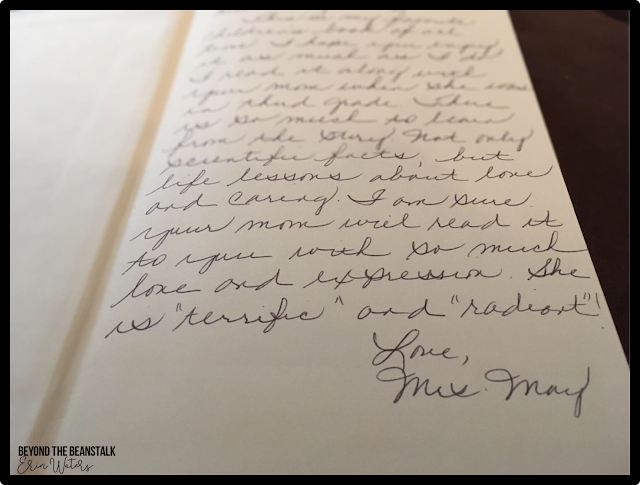 This is my favorite
children's book of all
time. I hope you enjoy
it as much as I do.
I read it along with
your mom when she was
in third grade. There
is so much to learn
from the story. Not only
scientific facts, but
life lessons about love
and caring. I am sure
your mom will read it
to you with so much
love and expression. She
is "terrific" and "radiant"!
Love,
Mrs. May
BEYOND THE BEANSTALK
Erin Waters